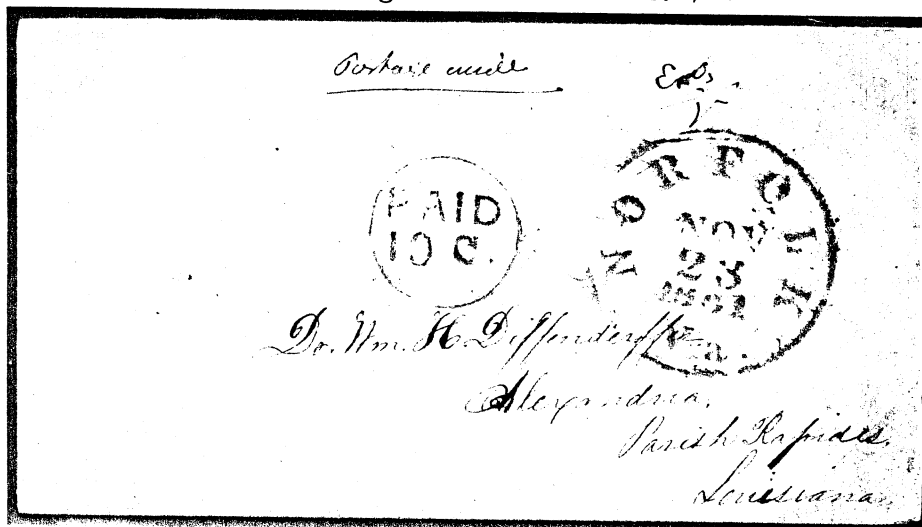 Postage
PAID
10 C.
NORFOLK
Va.
NOV
23
1861
Dr. Wm. H. Diffenderffer
Alexandria,
Parish Rapides,
Louisiana,